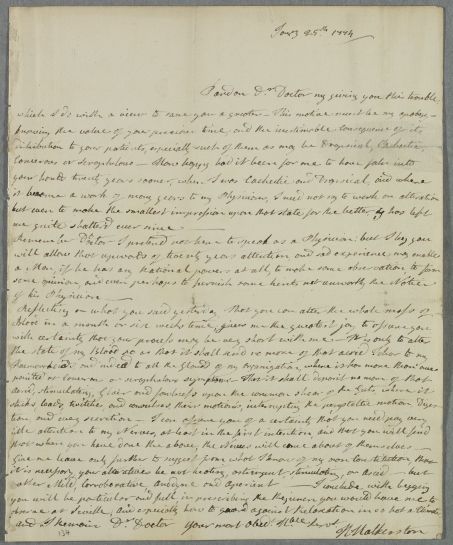 Jany 25th 1774
Pardon Dr Doctor my giving you this trouble
which I do with a view to save you a greater. This motive must be my apology
knowing the value of your precious time, and the inestimable consequence of its
distribution to your patients, especially such of them as may be Dropsical, Cachectic,
Cancerous or scrophulous — How happy had it been for me to have fallen into
your hands twenty years sooner, when I was Cachectic and Dropsical, and when
it became a work of many years to my Physicians, I will not say to work an alteration
but even to make the smallest impression upon that state for the better, has left
me quite shatter'd ever since —
Remember Doctor I pretend not here to speak as a Physician but I hope you
will allow that upwards of twenty years attention and sad experience may enable
a Man, if he has any rational powers at all, to make some observation to form
some opinion, and even perhaps to furnish some hints not unworth the Notice
of his Physician —
Reflecting on what you said yesterday that you can alter the whole mass of
blood in a month or six weeks time, gives me the greatest joy to assure you
with certainty that your process may be very short with me. It is only to alter
the state of my Blood so as that it shall send no more of that acrid Ichor to my
and to all the Glands of my
or scrophulous symptoms. That it shall deposit no more of that
acrid, stimulating, and upon the common of the Guts, which it
and convulses their motions, interrupting the peristaltic motion, Digestion
and every secretion — I can assure you of a certainty that you need pay very
little attention to my Nerves, at least in the first intention and that you will find
that when you have done the above, the Nerves will come about of themselves —
Give me leave only further to suggest from what I know of my own constitution that
it is necessary your alterative be not heating, astringent, stimulating, or Acid — but
rather Mild, Corroborative, anodyne and aperient — I conclude, with begging
you will be particular and full in prescribing the Regimen you would have me to
observe at Seville, and especially how to guard against Relaxation in so hot a Climate
and I remain Dr Doctor your most obed. Hble Servt